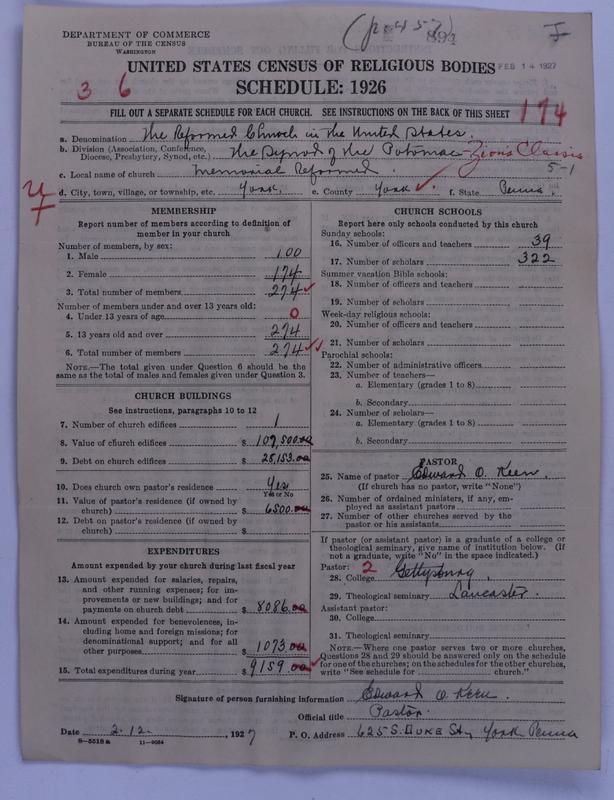 (p-457)
894
I
DEPARTMENT OF COMMERCE
BUREAU OF THE CENSUS
WASHINGTON
FEB 14 1927
UNITED STATES CENSUS OF RELIGIOUS BODIES
3 6
SCHEDULE: 1926
FILL OUT A SEPARATE SCHEDULE FOR EACH CHURCH. SEE INSTRUCTIONS ON THE BACK OF THIS SHEET
174
a. Denomination The Reformed Church in the United States.
b. Division (Association, Conference, Diocese, Presbytery, Synod, etc.) The Synod of the Potomac Zion's Classis
c. Local name of church Memorial Reformed. 5-1
d. City, town, village, or township, etc. York, e. County York ✓ f. State Penna.
MEMBERSHIP
Report number of members according to definition of
member in your church
Number of members, by sex:
1. Male 100
2. Female 174
3. Total number of members 274 ✓
Number of members under and over 13 years old:
4. Under 13 years of age 0
5. 13 years old and over 274
6. Total number of members 274 ✓✓
NOTE.—The total given under Question 6 should be
same as the total of males and females given under Question 3.
CHURCH BUILDINGS
See instructions, paragraphs 10 to 12
7. Number of church edifices 1
8. Value of church edifices $ 109,500.00
9. Debt on church edifices $ 28,153.00
10. Does church own pastor's residence Yes
Yes or No
11. Value of pastor's residence (if owned by
church) $ 6500.00
12. Debt on pastor's residence (if owned by
church) $
EXPENDITURES
Amount expended by your church during last fiscal year
13. Amount expended for salaries, repairs,
and other running expenses; for im-
provements or new buildings; and for
payments on church debt $ 8086.00
14. Amount expended for benevolences, in-
cluding home and foreign missions; for
denominational support; and for all
other purposes $ 1073.00
15. Total expenditures during year $ 9159.00 ✓
CHURCH SCHOOLS
Report here only schools conducted by this church
Sunday schools:
16. Number of officers and teachers 39
17. Number of scholars 322
Summer vacation Bible schools:
18. Number of officers and teachers
19. Number of scholars
Week-day religious schools:
20. Number of officers and teachers
21. Number of scholars
Parochial schools:
22. Number of administrative officers
23. Number of teachers—
a. Elementary (grades 1 to 8)
b. Secondary
24. Number of scholars—
a. Elementary (grades 1 to 8)
b. Secondary
PASTOR
25. Name of pastor Edward O. Keen.
(If church has no pastor, write "None")
26. Number of ordained ministers, if any, em-
ployed as assistant pastors
27. Number of other churches served by the
pastor or his assistants
If pastor (or assistant pastor) is a graduate of a college or
theological seminary, give name of institution below. (If
not a graduate, write "No" in the space indicated.)
Pastor: 2
28. College Gettysburg.
29. Theological seminary Lancaster.
Assistant pastor:
30. College
31. Theological seminary
NOTE.—Where one pastor serves two or more churches,
Questions 28 and 29 should be answered only on the schedule
for one of the churches; on the schedules for the other churches,
write "See schedule for church."
Signature of person furnishing information Edward O. Keen.
Official title Pastor.
Date 2.12., 1927 P. O. Address 625 S. Duke St., York Penna
8—5518 a 11—9054